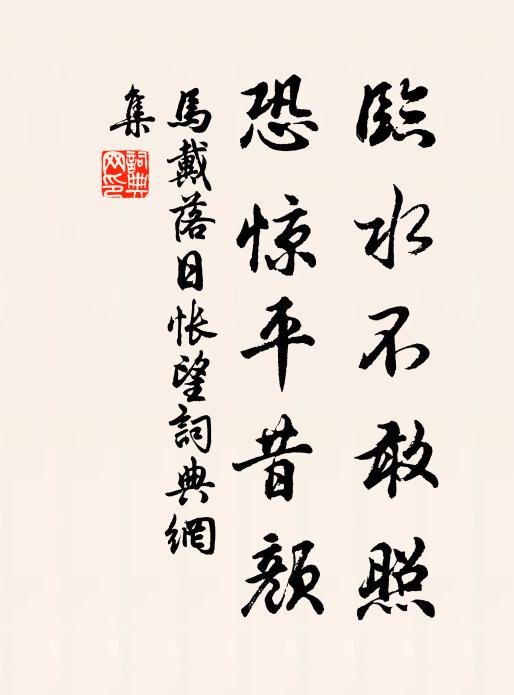 臨水不敢照
恐惊平昔顏
馬戴落日悵望詞典網
集
詞典
网印